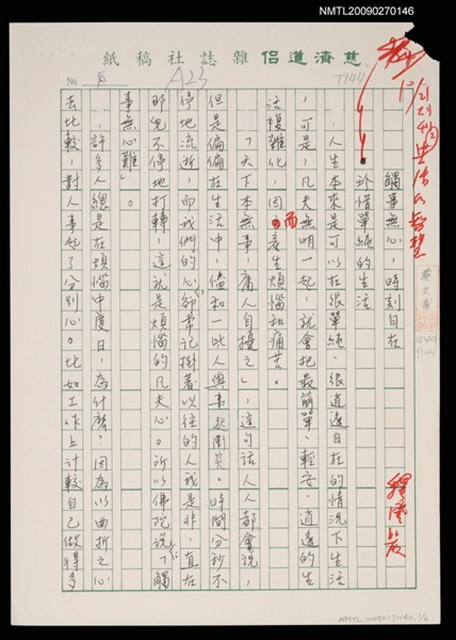 NMTL20090270146
慈濟道侶雜誌社稿紙
No
A23
T144
觸事無心，時刻自在
珍惜單純的生活
人生本來是可以在很單純、很逍遙自在的情況下生活
，可是，凡夫無明一起，就會把最簡單、輕安、逍遙的生
活複雜化，因而產生煩惱和痛苦。
「天下本無事，庸人自擾之」，這句話人人都會說，
但是偏偏在生活中，儘和一些人與事起衝突。時間分秒不
停地流逝，而我們的心卻常記掛著以往的人我是非，直在
那兒不停地打轉，這就是煩惱的凡夫心。所以佛陀說：「觸
事無心難」。
許多人總是在煩惱中度日，為什麼？因為以曲折之心
去比較，對人事起了分別心。比如工作上計較自己做得多
NMTL20090270146 1/2